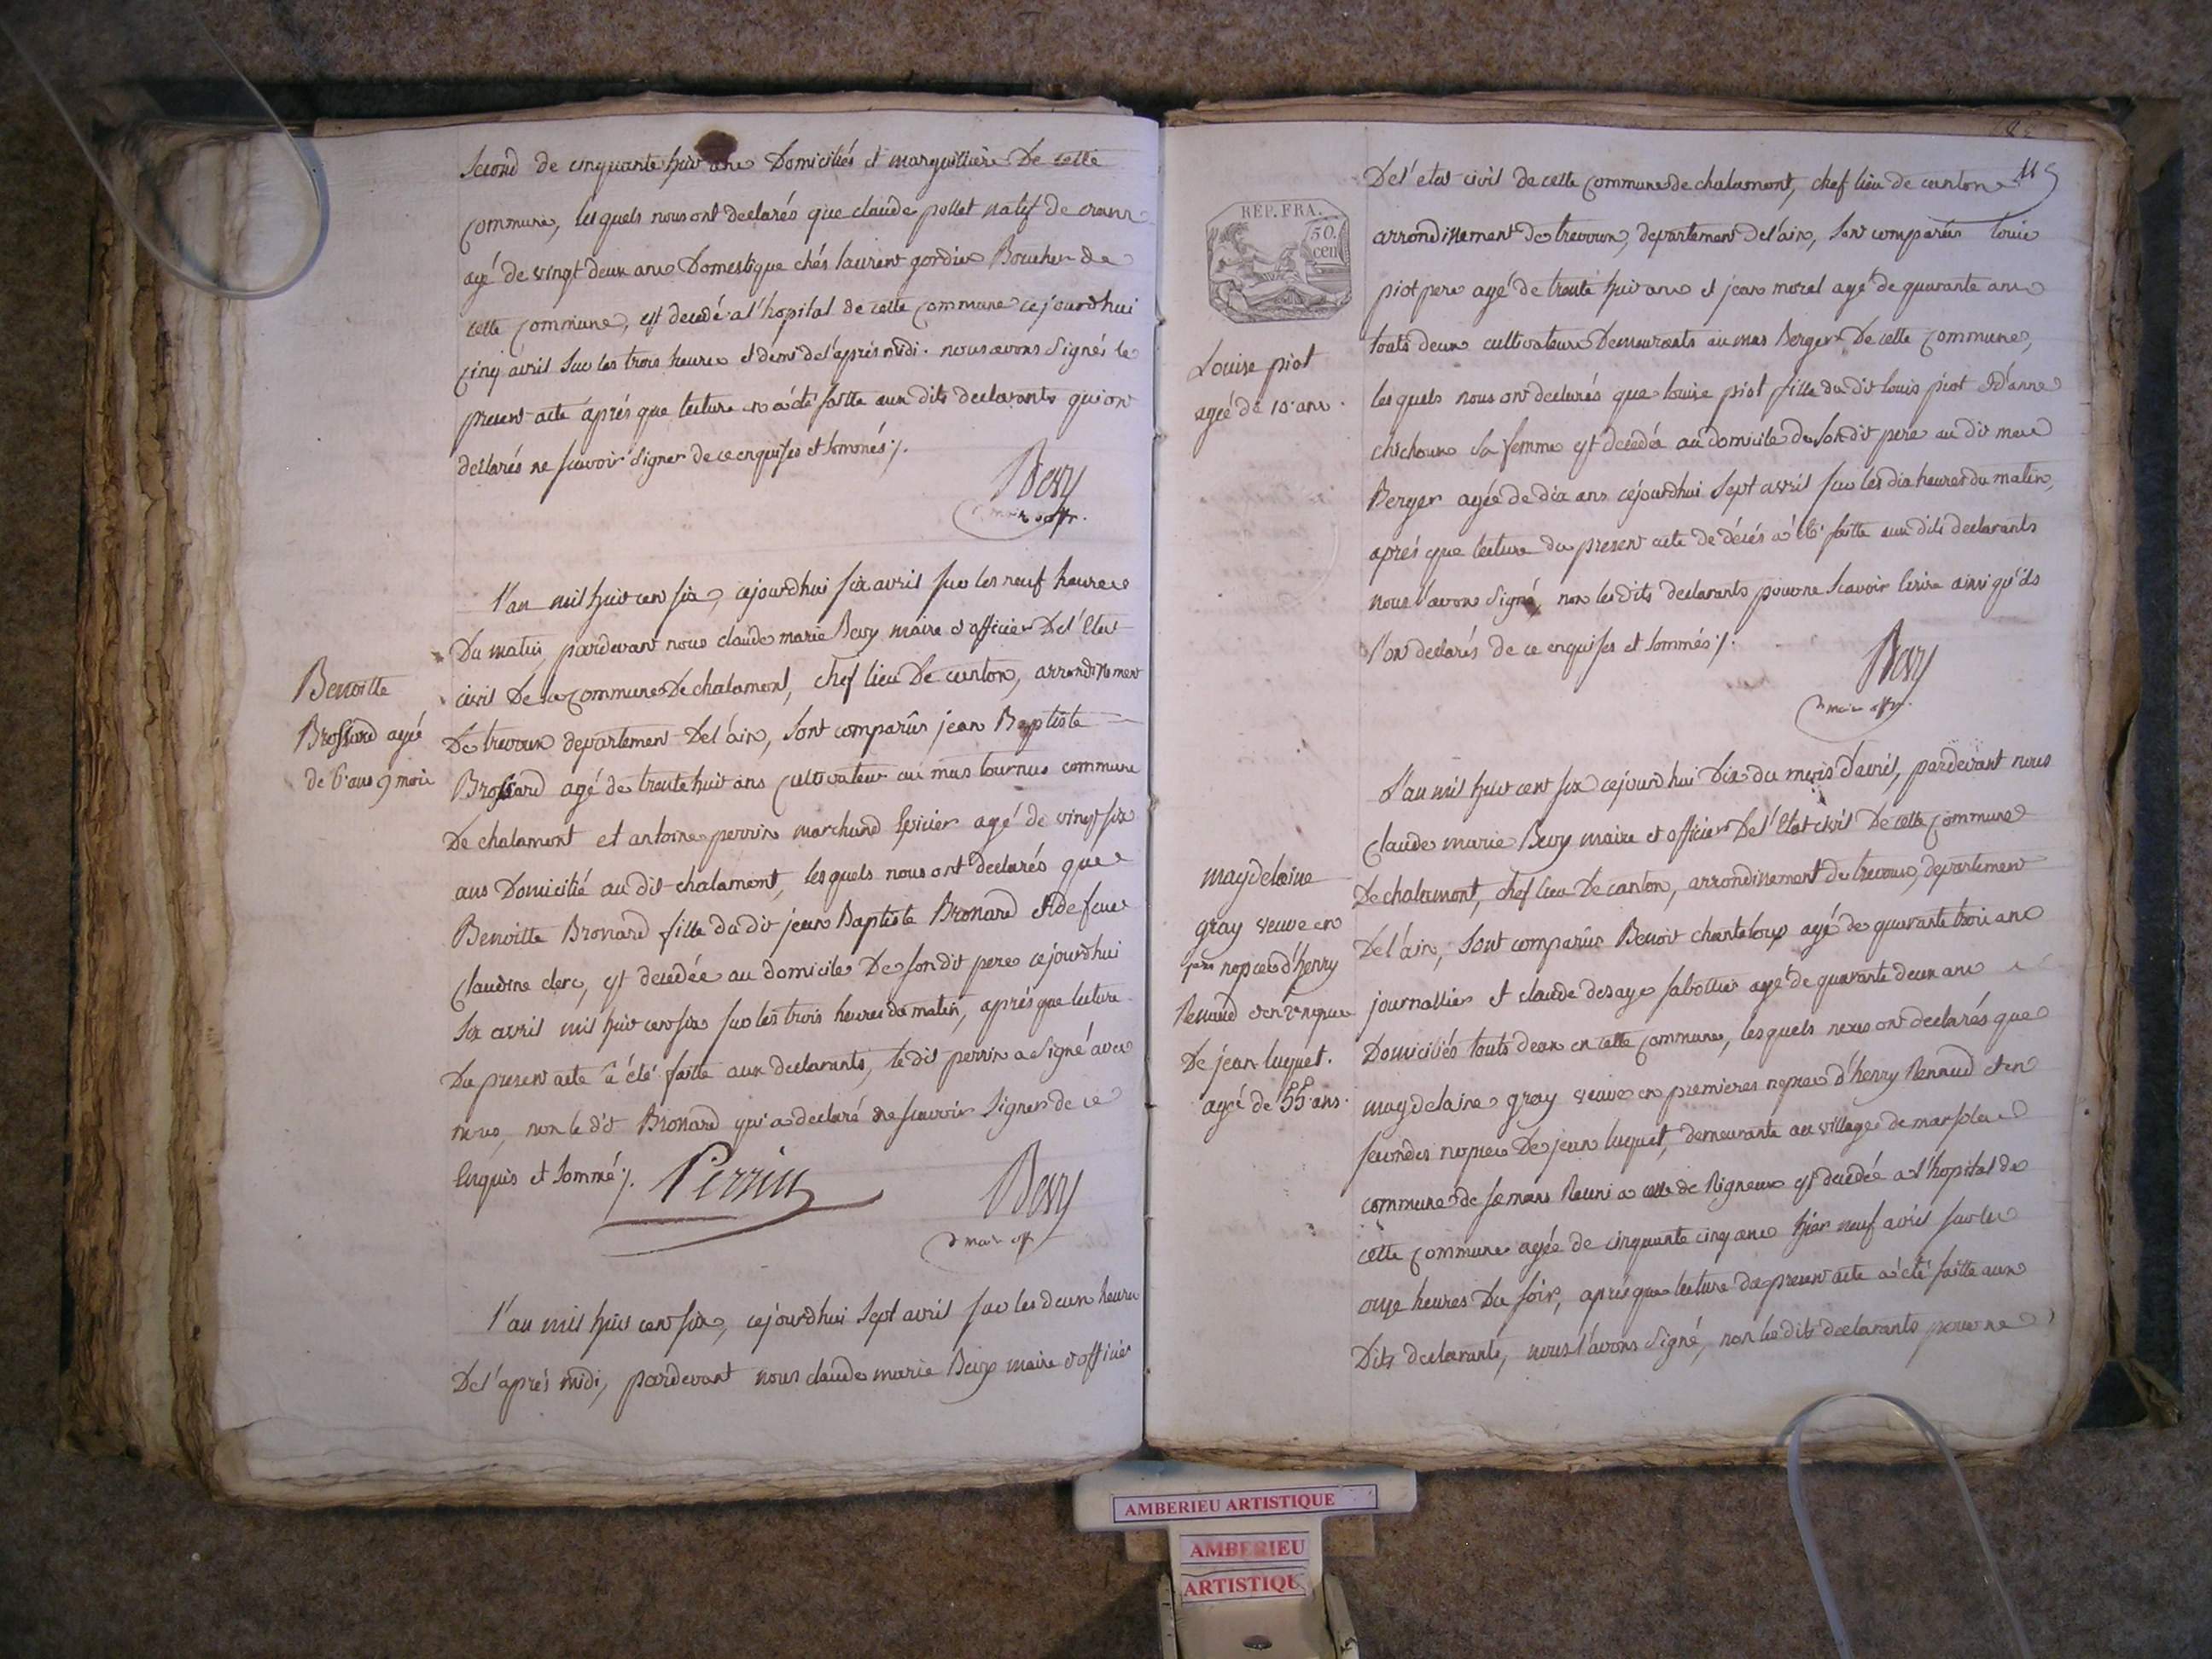 second de cinquante huit ans Domiciliés et marguilliers De cette
commune, lesquels nous ont declarés que claude pollet natif de crans
agé de vingt deux ans Domestique chés laurent gordier Boucher de
cette commune, est decedé a l'hopital de cette commune cejourdhui
cinq avril sur les trois heures et demi de l'aprés midi. nous avons signés le
present acte aprés que lecture en a été faitte aux dits declarants qui ont
declarés ne scavoir signer de ce enquises et sommés ⁒.
Bevy
maire offr.
Benoitte
Brossard agée
de 6 ans 9 mois
l'an mil huit cent six, cejourdhui six avril sur les neuf heures
Du matin, pardevant nous claude marie Bevy maire et officier De l'Etat
civil De la commune De chalamont, chef lieu De canton, arrondissement
De trevoux departement De l'ain, sont comparûs jean Baptiste
Brossard agé de trente huit ans cultivateur au mas tournus commune
De chalamont et antoine perrin marchand Epicier agé de vingt six
ans Domicilié au dit chalamont, lesquels nous ont declarés que
Benoitte Brossard fille du dit jean Baptiste Brossard et de feue
Claudine clerc, est decedée au domicile De son dit pere cejourdhui
six avril mil huit cent six sur les trois heures du matin, aprés que lecture
Du present acte a été faitte aux declarants, le dit perrin a signé avec
nous, non le dit Brossard qui a declaré ne scavoir signer de ce
Enquis et sommé ⁒. Perrin
Bevy
maire off
l'an mil huit cent six, cejourdhui sept avril sur les deux heures
De l'aprés midi, pardevant nous claude marie Bevy maire et officier
115
REP. FRA.
50.
cen
Louise piot
agée de 10 ans.
De l'etat civil de cette commune de chalamont, chef lieu de canton
arrondissement de trevoux, departement de l'ain, sont comparûs louis
piot pere agé de trente huit ans et jean morel agé de quarante ans
touts deux cultivateurs Demeurants au mas Berger De cette commune,
lesquels nous ont declarés que louise piot fille du dit louis piot et d'anne
chichoux sa femme est decedée au domicile de son dit pere au dit mas
Berger agée de dix ans cejourdhui sept avril sur les dix heures du matin,
aprés que lecture du present acte de décés a été faitte aux dits declarants
nous l'avons signé, non les dits declarants pour ne scavoir Ecrire ainsi qu'ils
l'ont declarés de ce enquises et sommés ⁒.
Bevy
maire offr.
magdelaine
gray veuve en
1eres nopces d'henry
Renaud et en 2es nopces
De jean luquet.
agée de 55 ans.
L'an mil huit cent six cejourdhui Dix du mois d'avril, pardevant nous
Claude marie Bevy maire et officier De l'Etat civil De cette commune
De chalamont, chef lieu De canton, arrondissement de trevoux, departement
De l'ain, sont comparûs Benoit chanteloup agé de quarante trois ans
journallier et claude desaye sabottier agé de quarante deux ans
Domiciliés touts deux en cette commune, lesquels nous ont declarés que
magdelaine gray veuve en premieres nopces d'henry Renaud et en
secondes nopces De jean luquet, demeurante au village de marsoleu
commune de semans Reuni a celle de Rigneux est decedée a l'hopital de
cette commune agée de cinquante cinq ans hier neuf avril sur les
onze heures Du soir, aprés que lecture du present acte a été faitte aux
Dits declarants, nous l'avons signé, non les dits declarants pour ne
AMBERIEU ARTISTIQUE
AMBERIEU
ARTISTIQUE